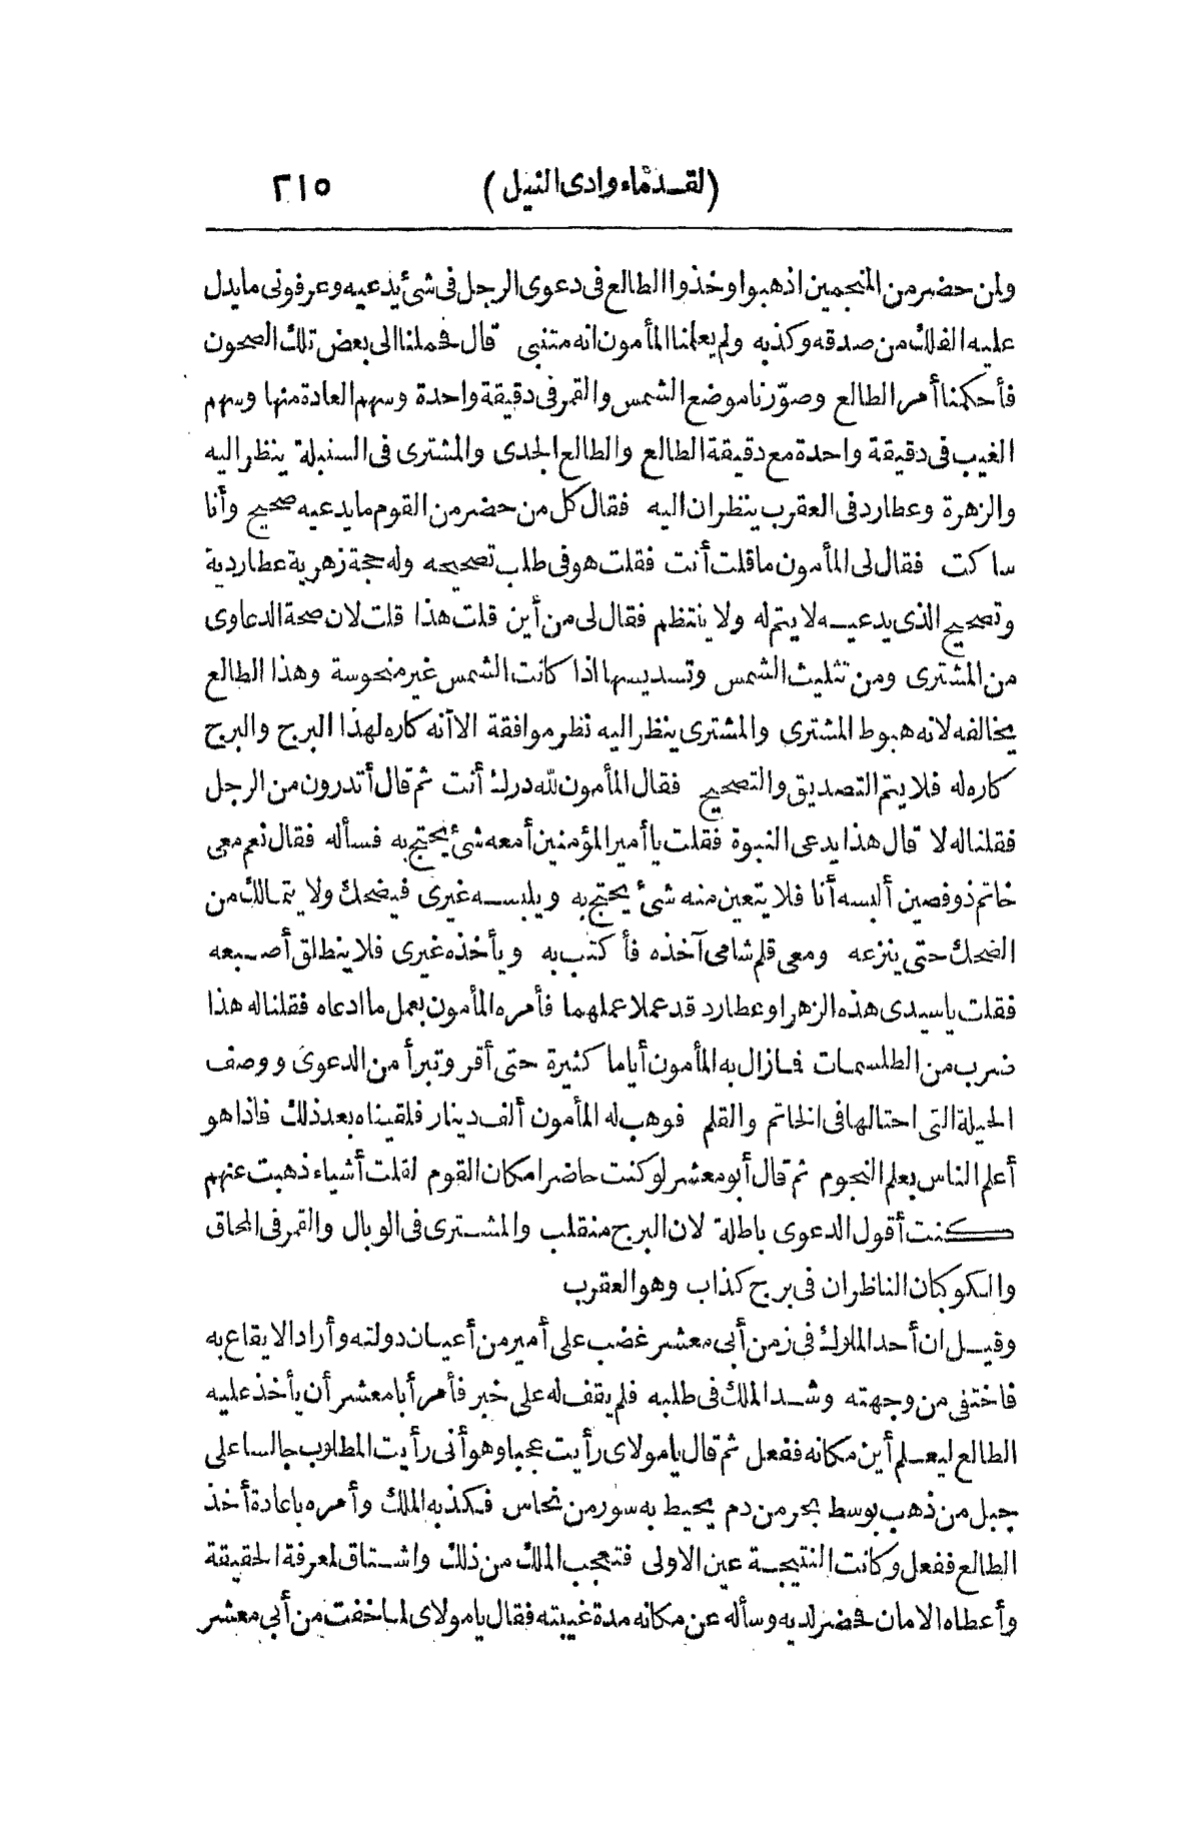 (لقدماء وادى النيل) ٢١٥
ولمن حضر من المنجمين اذهبوا وخذوا الطالع فى دعوى الرجل فى شئ يدعيه وعرفونى ما يدل
عليه الفلك من صدقه وكذبه ولم يعلمنا المأمون انه متنبى قال فحملنا الى بعض تلك الصحون
فأحكمنا أمر الطالع وصوّرنا موضع الشمس والقمر فى دقيقة واحدة وسهم العادة منها وسهم
الغيب فى دقيقة واحدة مع دقيقة الطالع والطالع الجدى والمشترى فى السنبلة ينظر اليه
والزهرة وعطارد فى العقرب ينظران اليه فقال كل من حضر من القوم ما يدعيه صحيح وأنا
ساكت فقال لى المأمون ما قلت أنت فقلت هو فى طلب تصحيحه وله حجة زهرية عطاردية
وتصحيح الذى يدعيه لا يتم له ولا ينتظم فقال لى من أين قلت هذا قلت لان صحة الدعاوى
من المشترى ومن تثليث الشمس وتسديسها اذا كانت الشمس غير منحوسة وهذا الطالع
يخالفه لانه هبوط المشترى والمشترى ينظر اليه نظر موافقة الا أنه كاره لهذا البرج والبرج
كاره له فلا يتم التصديق والتصحيح فقال المأمون لله درك أنت ثم قال أتدرون من الرجل
فقلنا له لا قال هذا يدعى النبوة فقلت يا أمير المؤمنين أمعه شئ يحتج به فسأله فقال نعم معى
خاتم ذو فصين ألبسه أنا فلا يتعين منه شئ يحتج به ويلبسه غيرى فيضحك ولا يتمالك من
الضحك حتى ينزعه ومعى قلم شامى آخذه فأكتب به ويأخذه غيرى فلا ينطلق أصبعه
فقلت يا سيدى هذه الزهرا وعطارد قد عملا عملهما فأمره المأمون بعمل ما ادعاه فقلنا له هذا
ضرب من الطلسمات فما زال به المأمون أياما كثيرة حتى أقر وتبرأ من الدعوى ووصف
الحيلة التى احتالها فى الخاتم والقلم فوهب له المأمون ألف دينار فلقيناه بعد ذلك فاذا هو
أعلم الناس بعلم النجوم ثم قال أبو معشر لو كنت حاضرا مكان القوم لقلت أشياء ذهبت عنهم
كنت أقول الدعوى باطلة لان البرج منقلب والمشترى فى الوبال والقمر فى المحاق
والكوكبان الناظران فى برج كذاب وهو العقرب
وقيل ان أحد الملوك فى زمن أبى معشر غضب على أمير من أعيان دولته وأراد الايقاع به
فاختفى من وجهته وشد الملك فى طلبه فلم يقف له على خبر فأمر أبا معشر أن يأخذ عليه
الطالع ليعلم أين مكانه ففعل ثم قال يا مولاى رأيت عجبا وهو أنى رأيت المطلوب جالسا على
جبل من ذهب بوسط بحر من دم يحيط به سور من نحاس فكذبه الملك وأمره باعادة أخذ
الطالع ففعل وكانت النتيجة عين الاولى فتعجب الملك من ذلك واشتاق لمعرفة الحقيقة
وأعطاه الامان فحضر لديه وسأله عن مكانه مدة غيبته فقال يا مولاى لما خفت من أبى معشر